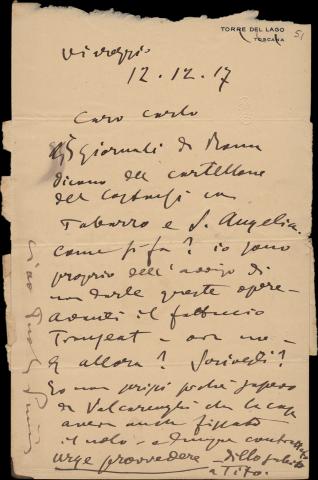 TORRE DEL LAGO
TOSCANA
51
Viareggio
12.12.17
Caro Carlo
Giornali di Roma
dicono del cartellone
del Costanzi con
Tabarro e S. Angelica.
come si fa? io sono
proprio dell'avviso di
non darle queste opere
avanti il fattaccio
- ora no -
E allora? Scrivesti?
Io non scrissi poiché sapevo
da Valcarenghi che la casa
aveva anche fissato
il nolo - dunque contratto
urge provvedere - dillo subito
a Tito.